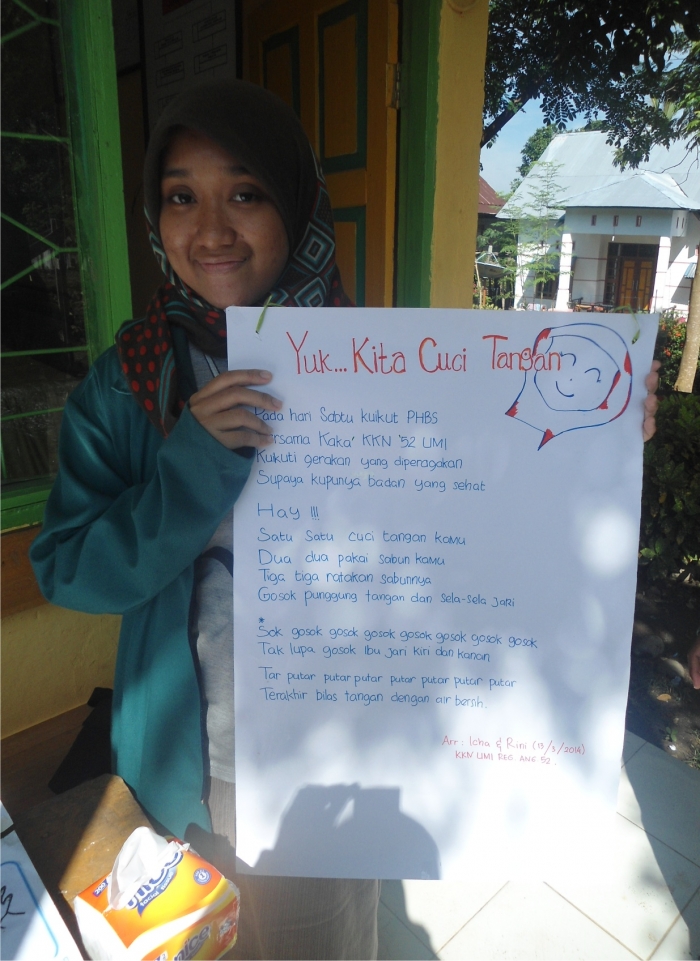 Yuk... Kita Cuci Tangan
Pada hari Sabtu kuikut PHBS
Bersama Kaka' KKN '52 UMI
Kukuti gerakan yang diperagakan
Supaya kupunya badan yang sehat
Hay !!!
Satu Satu cuci tangan kamu
Dua dua pakai sabun kamu
Tiga tiga ratakan sabunnya
Gosok punggung tangan dan sela-sela jari
*
Sok gosok gosok gosok gosok gosok gosok gosok
Tak lupa gosok Ibu jari kiri dan kanan
Tar putar putar putar putar putar putar putar
Terakhir bilas tangan dengan air bersih.
Arr : Icha & Rini (13/3/2014)
KKN UMI REG. ANG 52.
nice